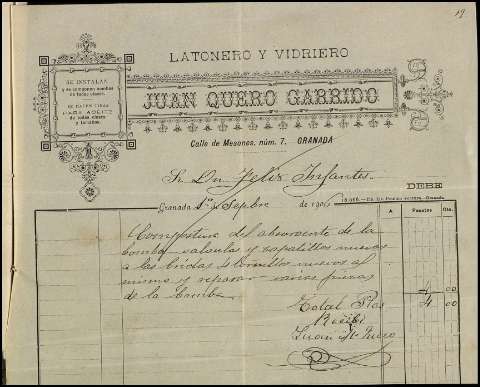 19
LATONERO Y VIDRIERO
SE INSTALAN
y se componen bombas
de todas clases.
SE HACEN LATAS
PARA ACEITE
de todas clases
y tamaños.
JUAN QUERO GARRIDO
Calle de Mesones, núm. 7. GRANADA
Sr. Dn. Felix Infantes
DEBE
Granada 1º Sepbre de 190
A Pesetas Cts.
Compostura del absorvente de la
bomba valvula y zapatillas nuevas
a las bridas 4 tornillos nuevos al
mismo y reparar varias piezas
de la bomba 4 00
Total Ptas 4 00
Recibí
Juan Quero